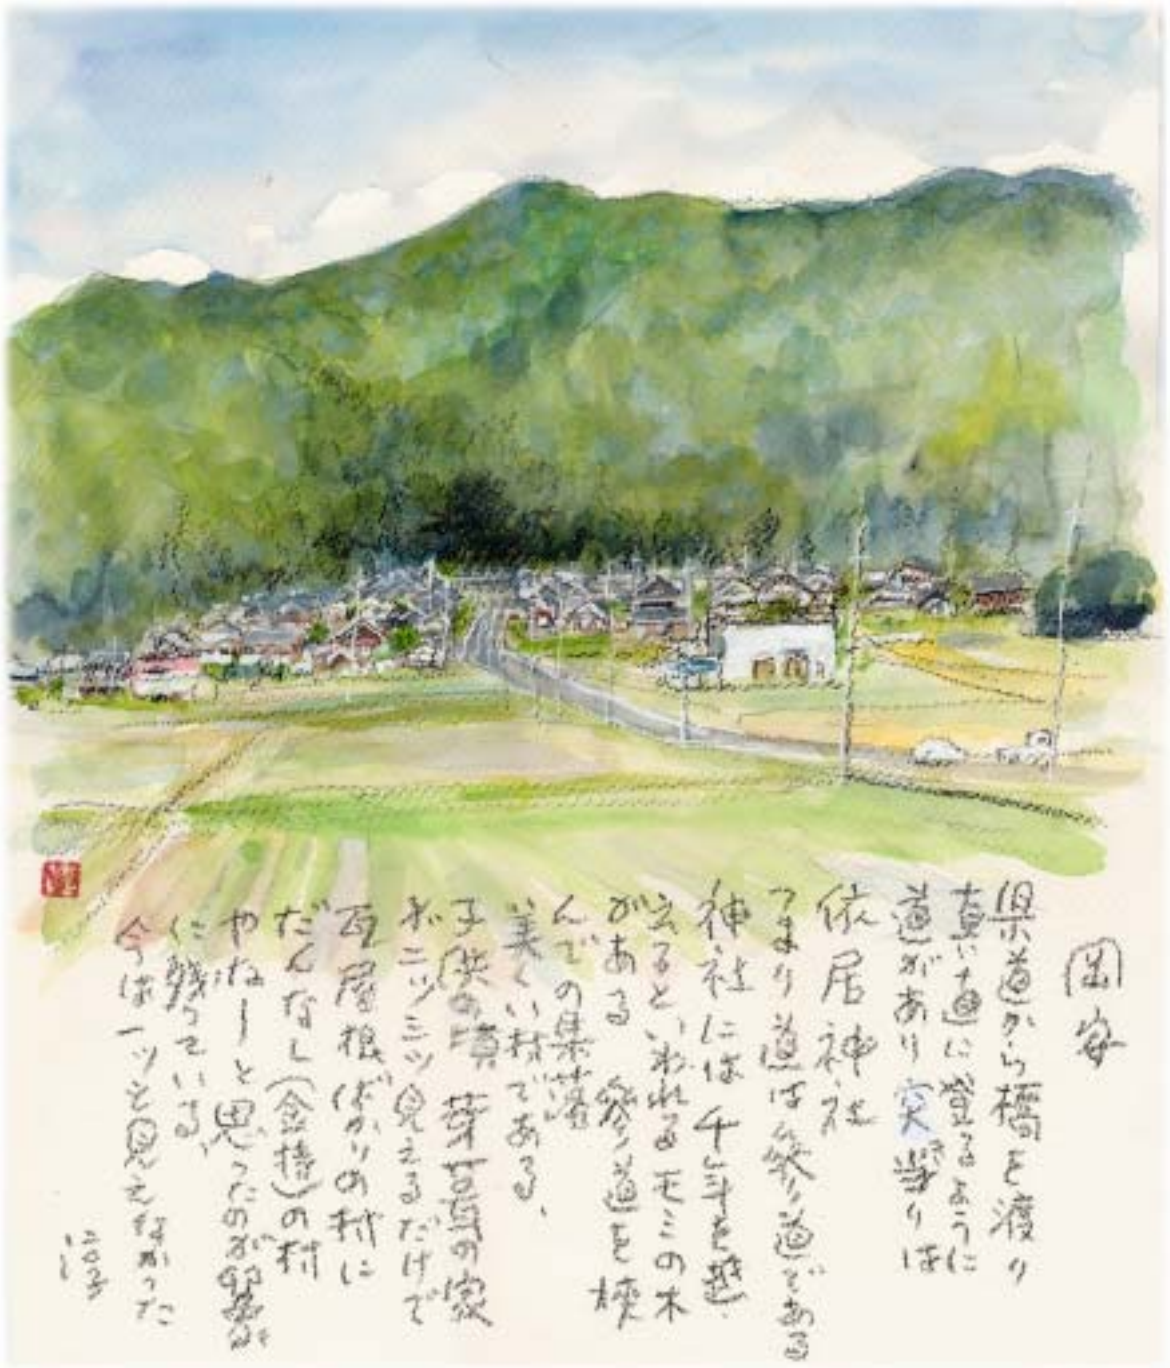 岡安
県道から橋を渡り
真い直に登るように
道があり突当りは
依居神社
つまり道は参り道である
神社には 千年を越
えるといわれるモミの木
がある 参り道を挾
んでの集落
美くい村である、
子供の頃 茅葺の家
が二ツ三ツ見えるだけで
瓦屋根ばかりの村に
だんなし(金持)の村
やねーと思ったのが印象
に残っている、
今は一ツと見えなかった